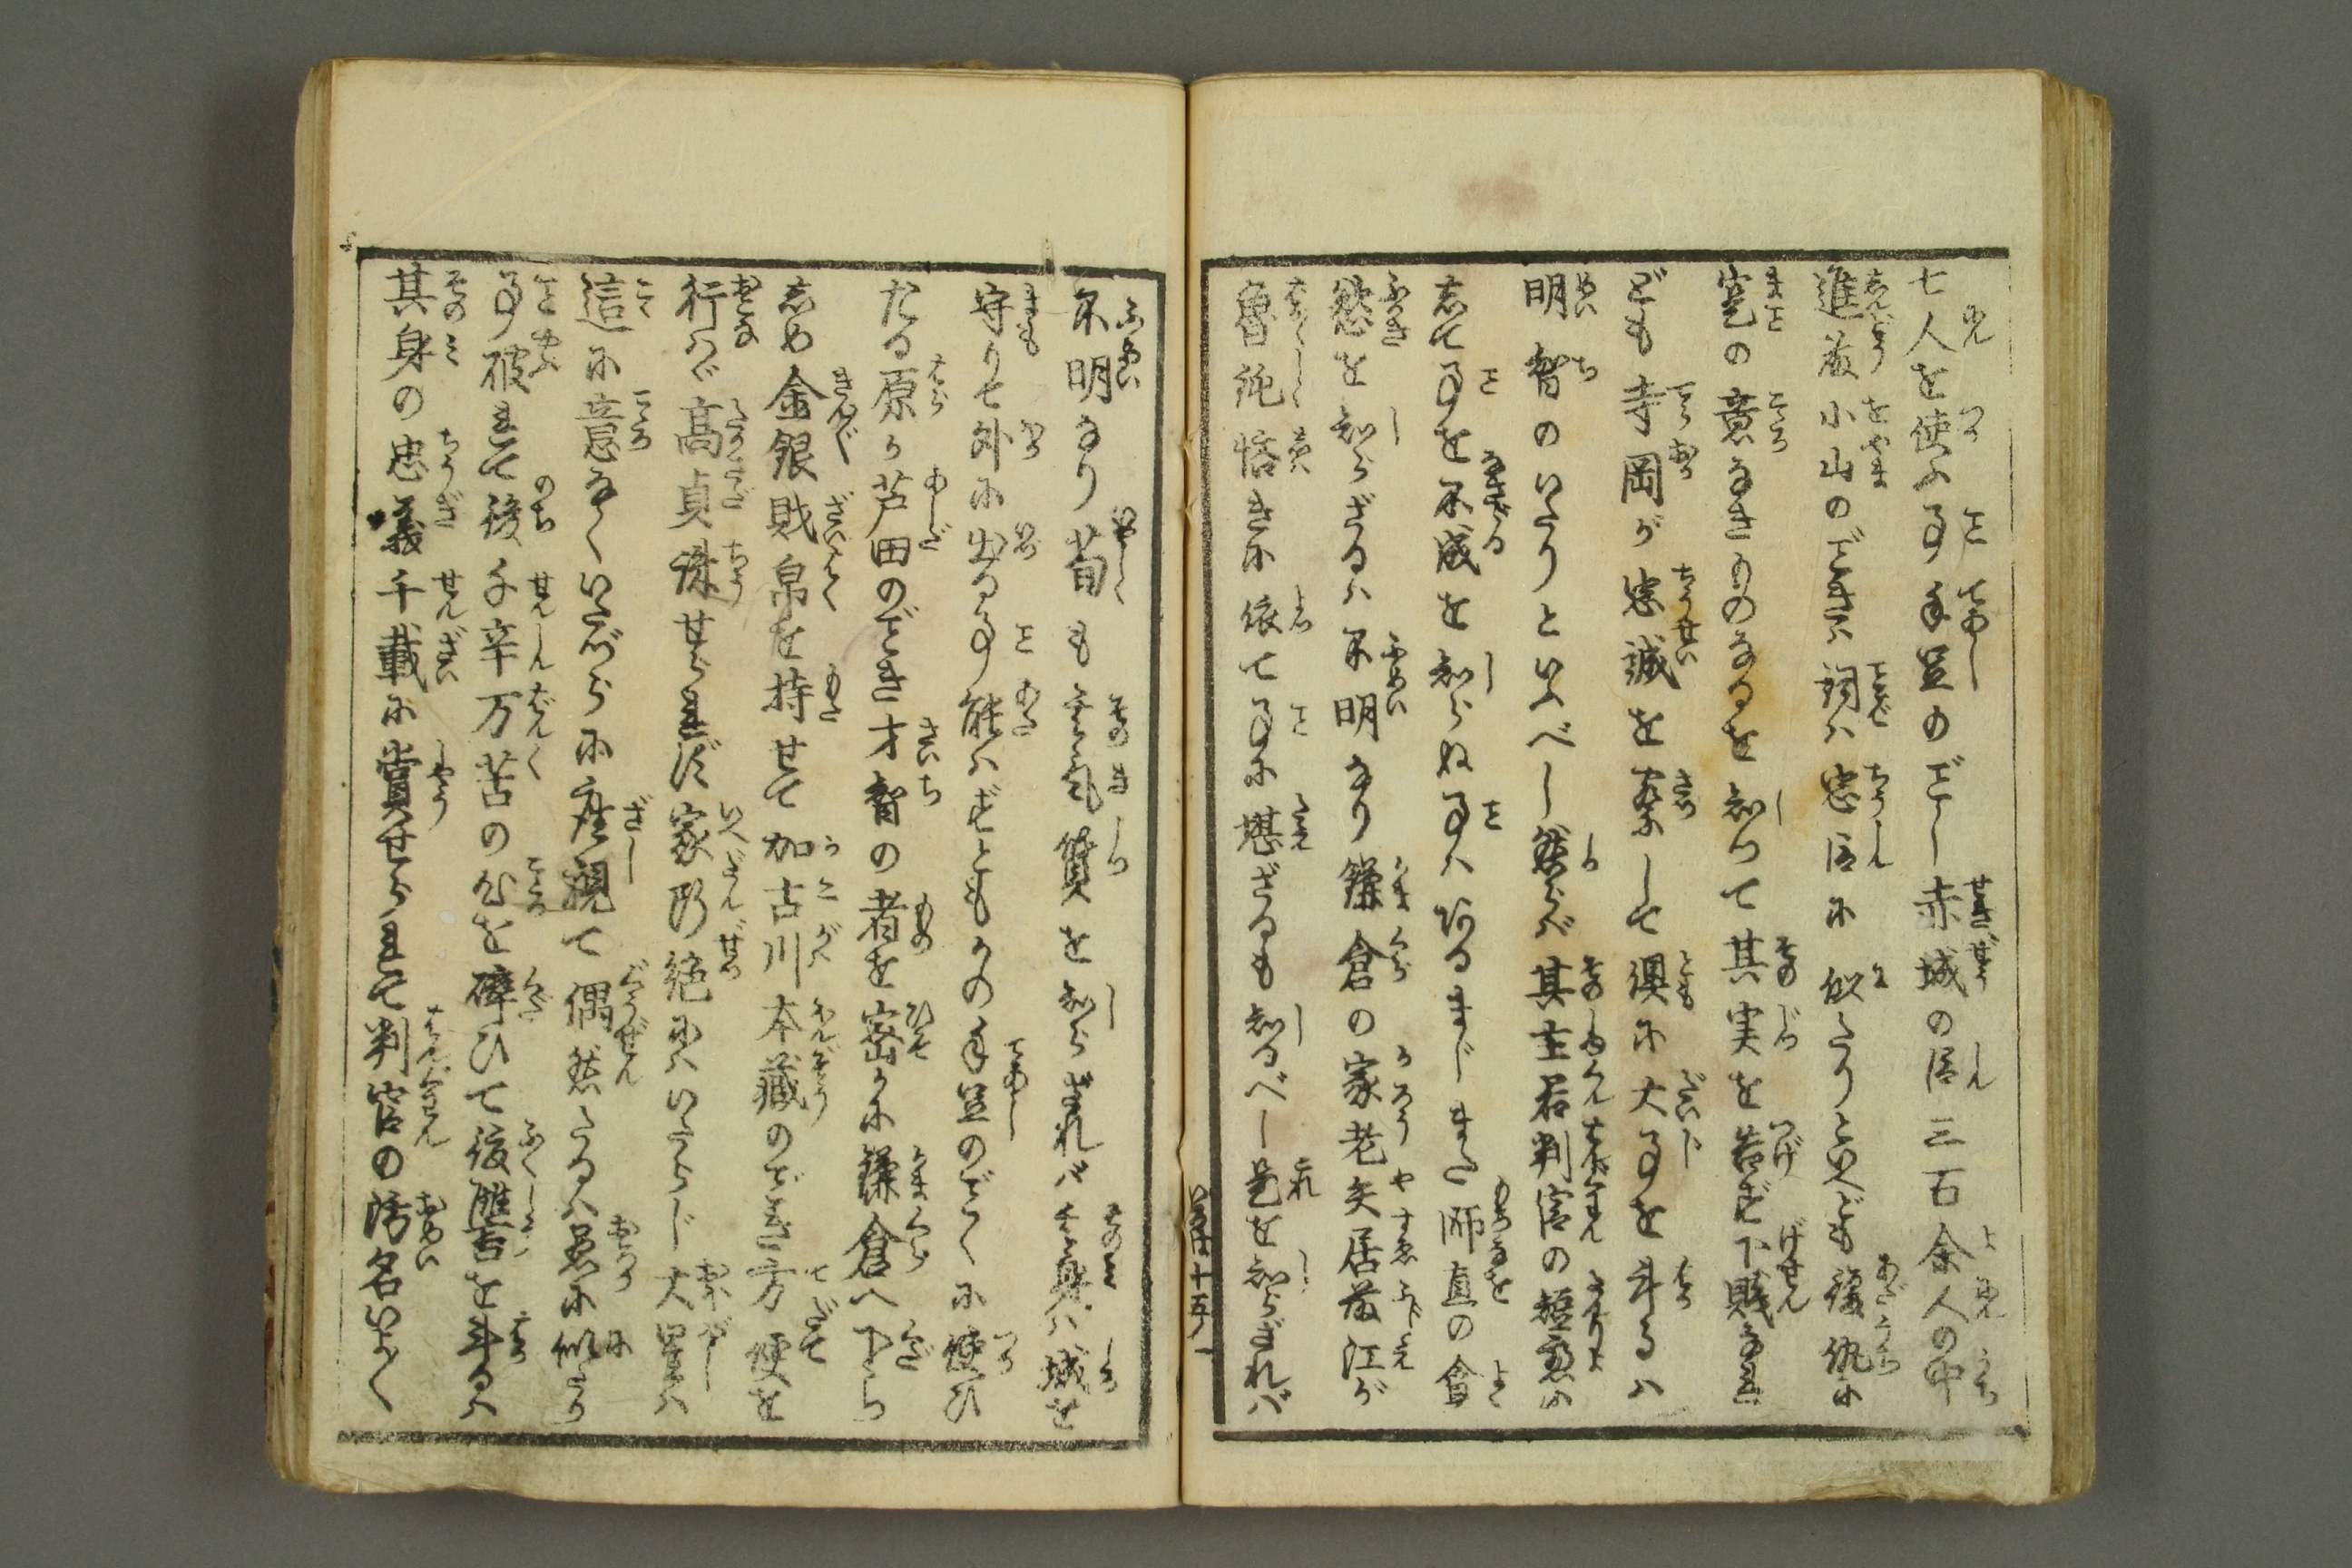 七人を使ふ事手足のごとし赤城の臣三百余人の中
進藤小山のごときハ詞ハ忠臣に似たりといへども復仇に
寔の意なきものなるを知つて其実を告ず下賤なれ
ども寺岡が忠誠を察して倶に大事を斗るハ
明智のいたりといふべし然らバ其主君判官の短慮に
して事を不成を知らぬ事ハあるまじまた師直の貪
慾を知らざるハ不明なり鎌倉の家老矢居藤江が
魯鈍悋きに依て事に堪ざるも知るべし是を知らざれバ
不明なり苟も其気質を知らざれバ其身ハ城を
守りて外に出る事能ハずともかの手足のごとくに使ひ
たる原か芦田のごとき才智の者を密かに鎌倉へ下ら
しめ金銀財帛を持せて加古川本蔵のごとき方便を
行ハヾ高貞誅せられず家断絶にハいたらじ大星ハ
這に意なくいたづらに座視て偶然たるハ愚に似たり
事破れて後千辛万苦の心を碎ひて復讐を斗るハ
其身の忠義千載に賞せられて判官の汚名いよ〳〵